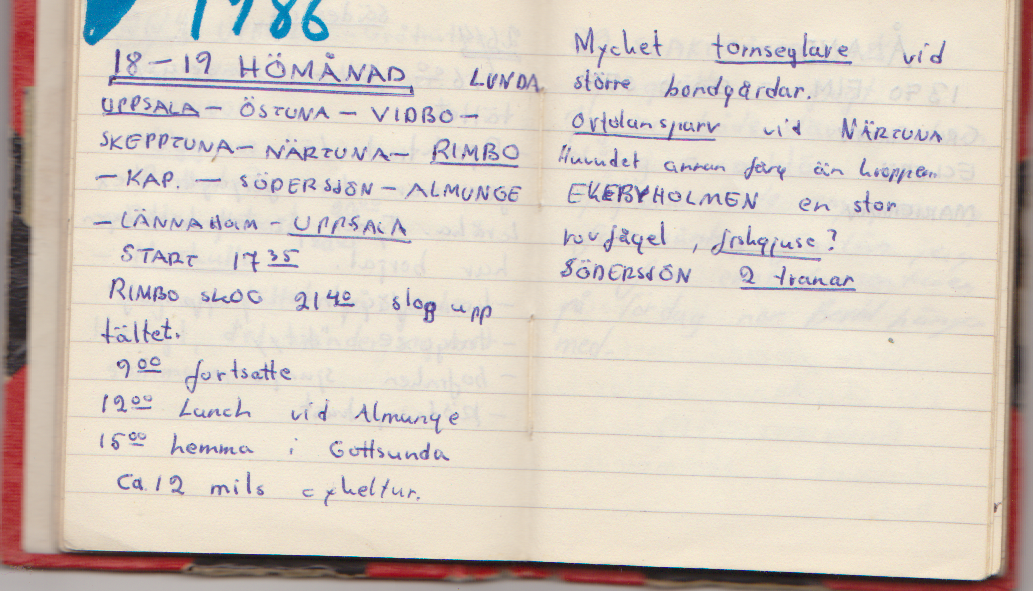 1986
18-19 HÖMÅNAD
LUNDA
UPPSALA - ÖSTUNA - VIDBO -
SKEPPTUNA - NÄRTUNA - RIMBO
- KAP. - SÖDERSJÖN - ALMUNGE
- LÄNNAHOLM - UPPSALA
START 17 35
RIMBO SKOG 21 40 slog upp
tältet.
9 00 fortsatte
12 00 Lunch vid Almunge
15 00 hemma i Gottsunda
Ca. 12 mils cykeltur.
Mycket tornseglare vid
större bondgårdar.
Ortolansparv vid NÄRTUNA
Huvudet annan färg än kroppen
EKEBYHOLMEN en stor
rovfågel, fiskgjuse?
SÖDERSJÖN 2 tranar